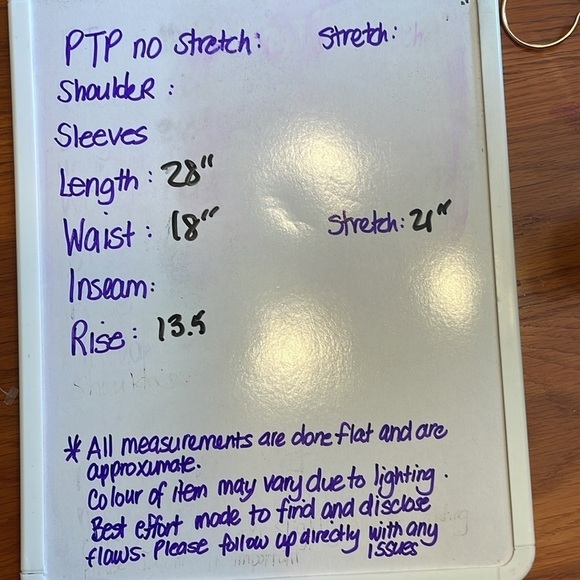 PTP no Stretch: Stretch:
ShouldeR :
Sleeves
Length : 28"
Waist : 18" Stretch: 21"
Inseam:
Rise: 13.5
* All measurements are done flat and are
approxumate.
Colour of item may vary due to lighting.
Best effort made to find and disclose
flaws. Please follow up directly with any
issues